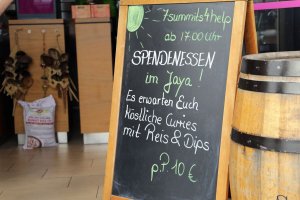 7summits4help
ab 17.00 Uhr
SPENDENESSEN
im Jaya!
Es erwarten Euch
köstliche Curries
mit Reis & Dips
p.P. 10 €